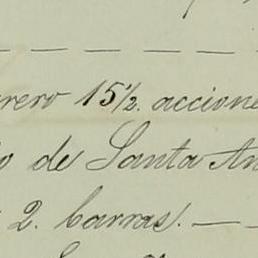 rero 15½. accione
o de Santa An
2. barras. —